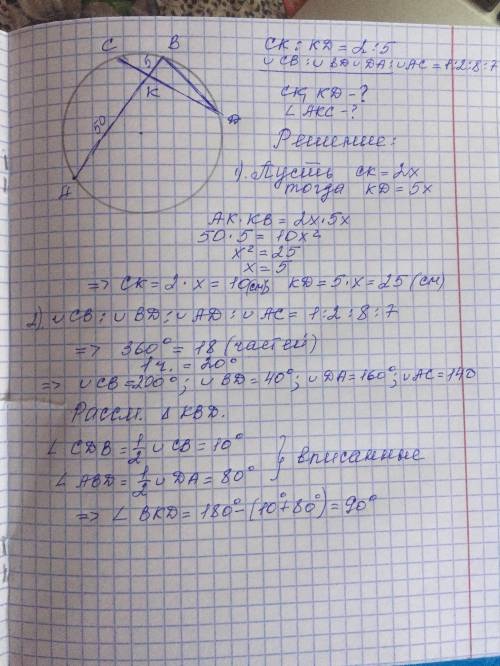 C
B
5
K
D
50
A
CK : KD = 2 : 5
∪CB : ∪BD ∪DA : ∪AC = 1:2:8:7
CK, KD - ?
∠AKC - ?
Решение:
1). Пусть CK = 2x
тогда KD = 5x
AK · KB = 2x · 5x
50 · 5 = 10x²
x² = 25
x = 5
=> CK = 2 · x = 10(см), KD = 5 · x = 25 (см)
2). ∪CB : ∪BD : ∪AD : ∪AC = 1 : 2 : 8 : 7
=> 360° = 18 (частей)
1 ч. = 20°
=> ∪CB = 200°; ∪BD = 40°; ∪DA = 160°; ∪AC = 140
Рассм. Δ KBD.
∠CDB = 1/2 ∪CB = 10°
∠ABD = 1/2 ∪DA = 80° } вписанные
=> ∠BKD = 180° - (10° + 80°) = 90°